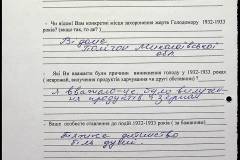 - Чи відомі Вам конкретні місця захоронення жертв Голодомору 1932-1933
років? (якщо так, то де? )
Відоме
Миколаївської
обл.
- Які Ви вважаєте були причини виникнення голоду у 1932-1933 роках
( неврожай, вилучення продуктів харчування чи друг обставини) ?
Я вважаю - це було вилучення
продуктів і зерна
- Ваше особисте ставлення до подій 1932-1933 років ( за бажанням)
дитинство
біль душі.